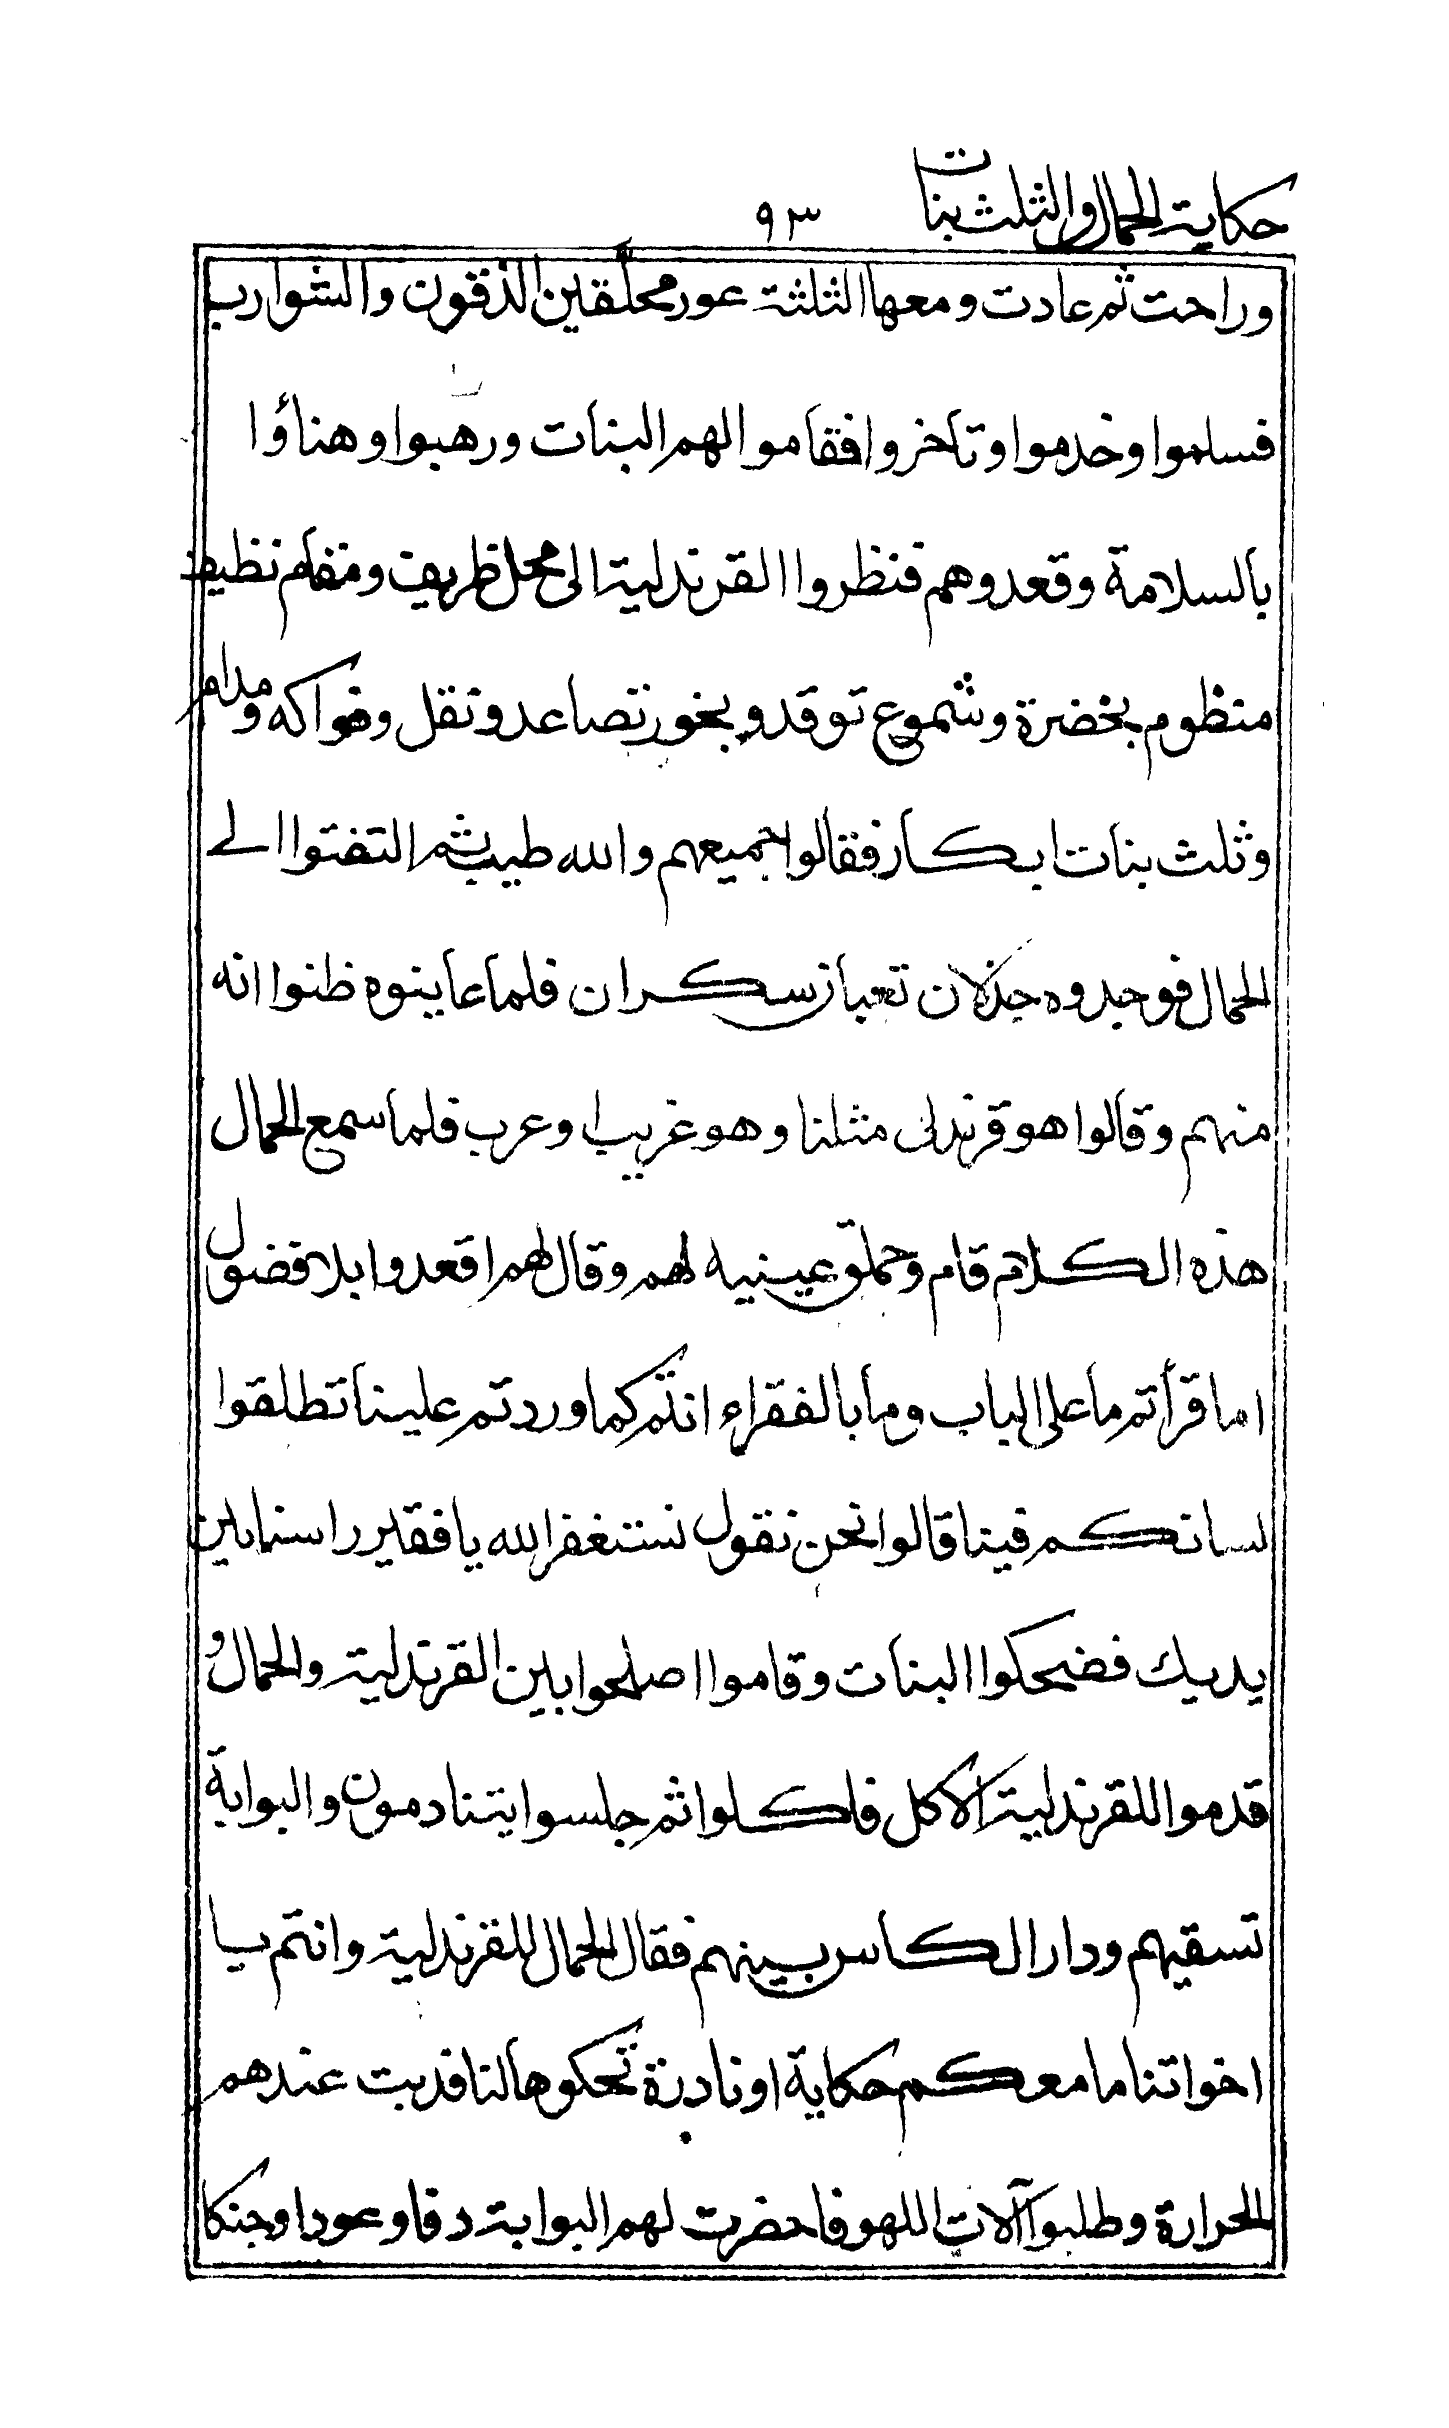 حكاية الحمال والثلث بنات
٩٣
وراحت ثم عادت ومعها الثلثة عور محلقين الذقون والشوارب
فسلموا وخدموا وتأخروا فقاموا لهم البنات ورهبوا وهناؤا
بالسلامة وقعدوهم فنظروا القرندلية الى محل ظريف ومقام نظيف
منظوم بخضرة وشموع توقد وبخور تصاعد ونقل وفواكه ومدام
وثلث بنات ابكار فقالوا جميعهم والله طيب ثم التفتوا الى
الحمال فوجدوه جذلان تعبان سكران فلما عاينوه ظنوا انه
منهم وقالوا هو قرندلى مثلنا وهو غريب او عرب فلما سمع الحمال
هذه الكلام قام وحملق عينيه لهم وقال لهم اقعدوا بلا فضول
اما قرأتم ما على الباب وما بالفقراء انتم كما وردتم علينا تطلقوا
لسانكم فينا قالوا نحن نقول نستغفر الله يا فقير راسنا بين
يديك فضحكوا البنات وقاموا اصلحوا بين القرندلية والحمال و
قدموا للقرندلية الاكل فاكلوا ثم جلسوا يتنادمون والبوابة
تسقيهم ودار الكاس بينهم فقال الحمال للقرندلية وانتم يا
اخواتنا ما معكم حكاية او نادرة تحكوها لنا فدبت عندهم
الحرارة وطلبوا آلات اللهو فاحضرت لهم البوابة دفا وعودا وجنكا